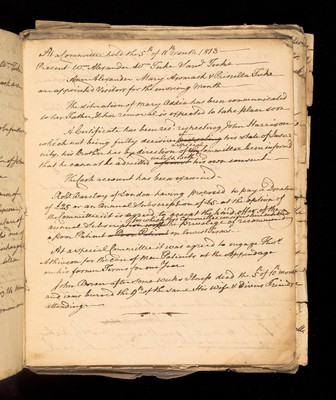 At a Committee held the 5th of 11th Month 1813
Present Wm Alexander Wm Tuke Saml Tuke
Ann Alexander Mary Awmack & Priscilla Tuke
are appointed Visitors for the ensuing Month
The situation of Mary Adkin has been communicated
to her Father, & her removal is expected to take place soon
A Certificate has been recd respecting John Harrison
which not being fully decisive respecting his state of Insa-
nity, his Brother has by direction of this Committee been informd
that he cannot be admitted unless with his own consent.
The Cash account has been examined
Robt Barclay of London having proposed to pay a Donation
of £25 or an Annual Subscription of £5 at the option of
the Committee it is agreed to accept the
annual Subscription the privilege of recommend
a poor Patient on lowest terms
At a special Committee it was agreed to engage Thos
Atkinson for the care of Men Patients at the Appendage
on his former Terms for one Year
John after some weeks illness died the 5th of 10 month
and was buried the 9th of the same His Wife & Divers Friends
attending